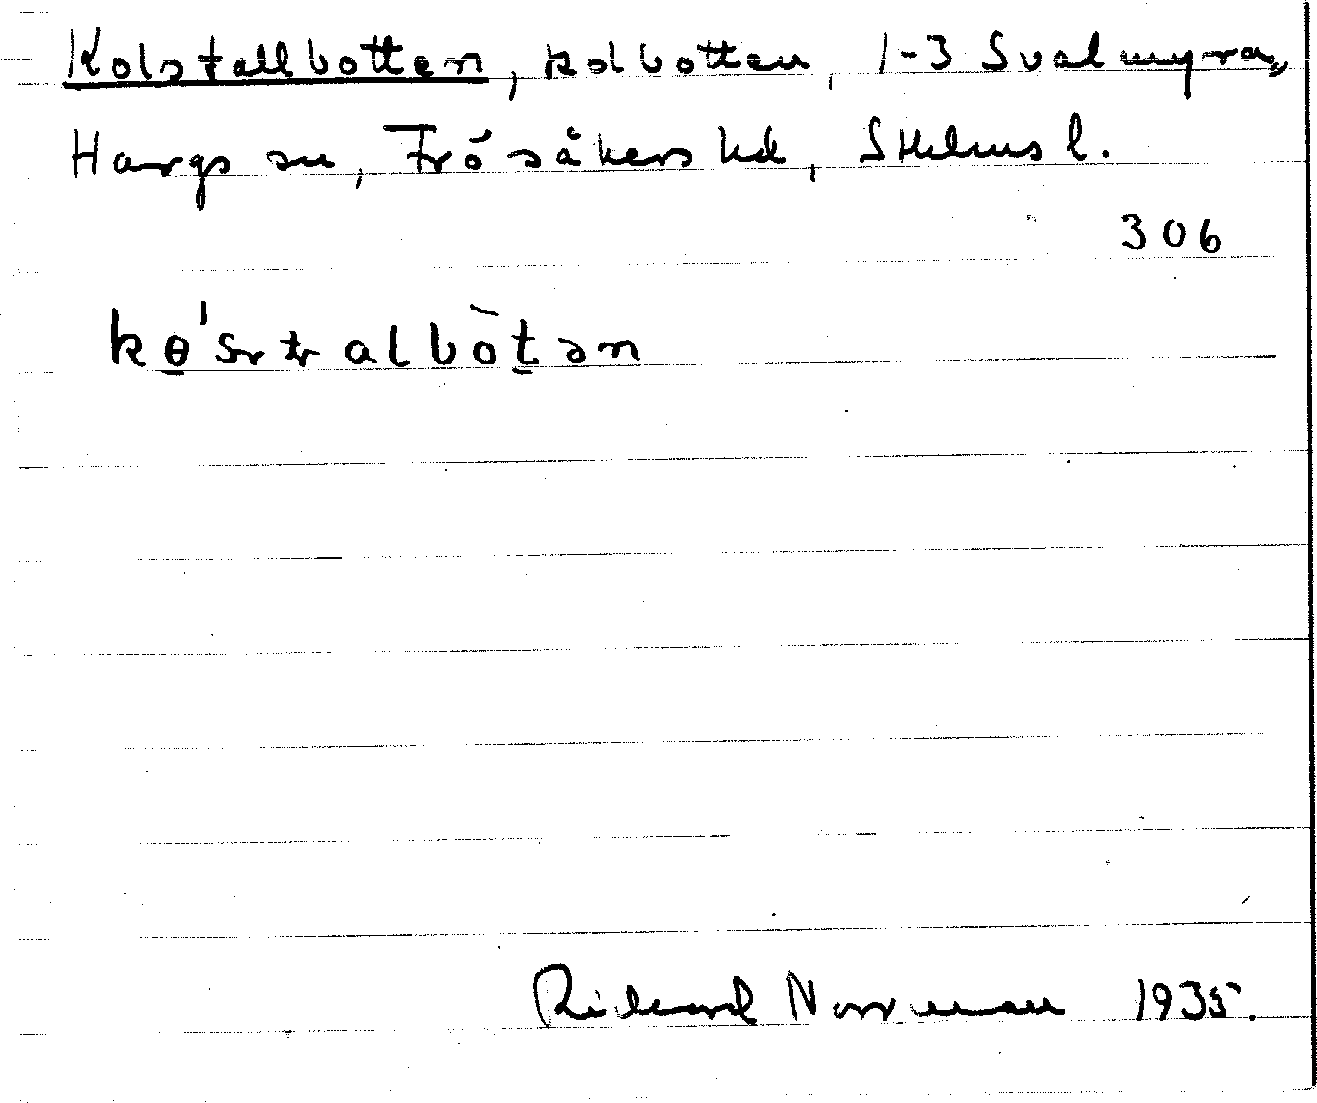 Kolstallbotten, kolbotten, 1-3 Svalmyra,
Hargs sn, Frösåkers hd, Sthlms l.
306
kɵ'stralbòtən
Rickard Norrman 1935.